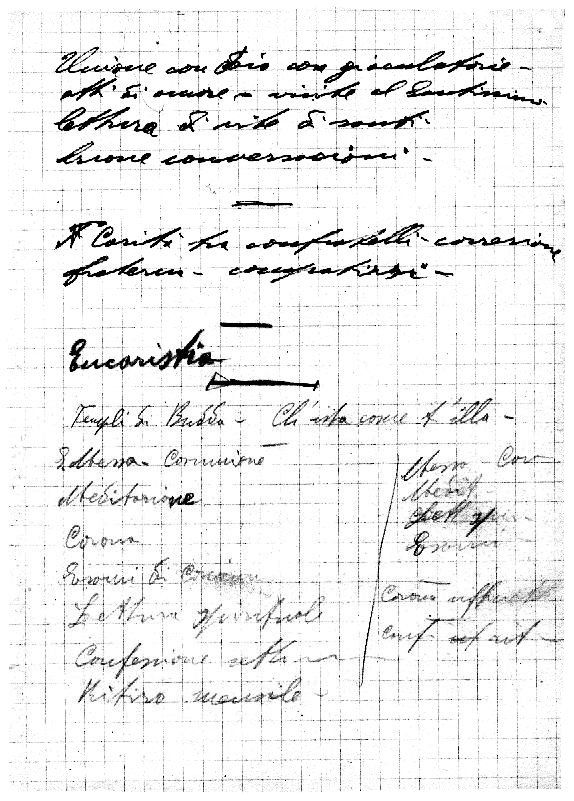 Unione con Dio con giaculatorie -
atti di amore - visite al Santissimo
lettura di vite di santi -
buone conversazioni -
Carità tra confratelli - correzione
fraterna - compatirsi -
Eucaristia
Templi di Budda -
Messa - Comunione
Meditazione
Corona
Esami di
Lettura spirituale
Confessione sett
Ritiro mensile -
Messa Com
Medit
Lett spir
Esami
Corona
Conf